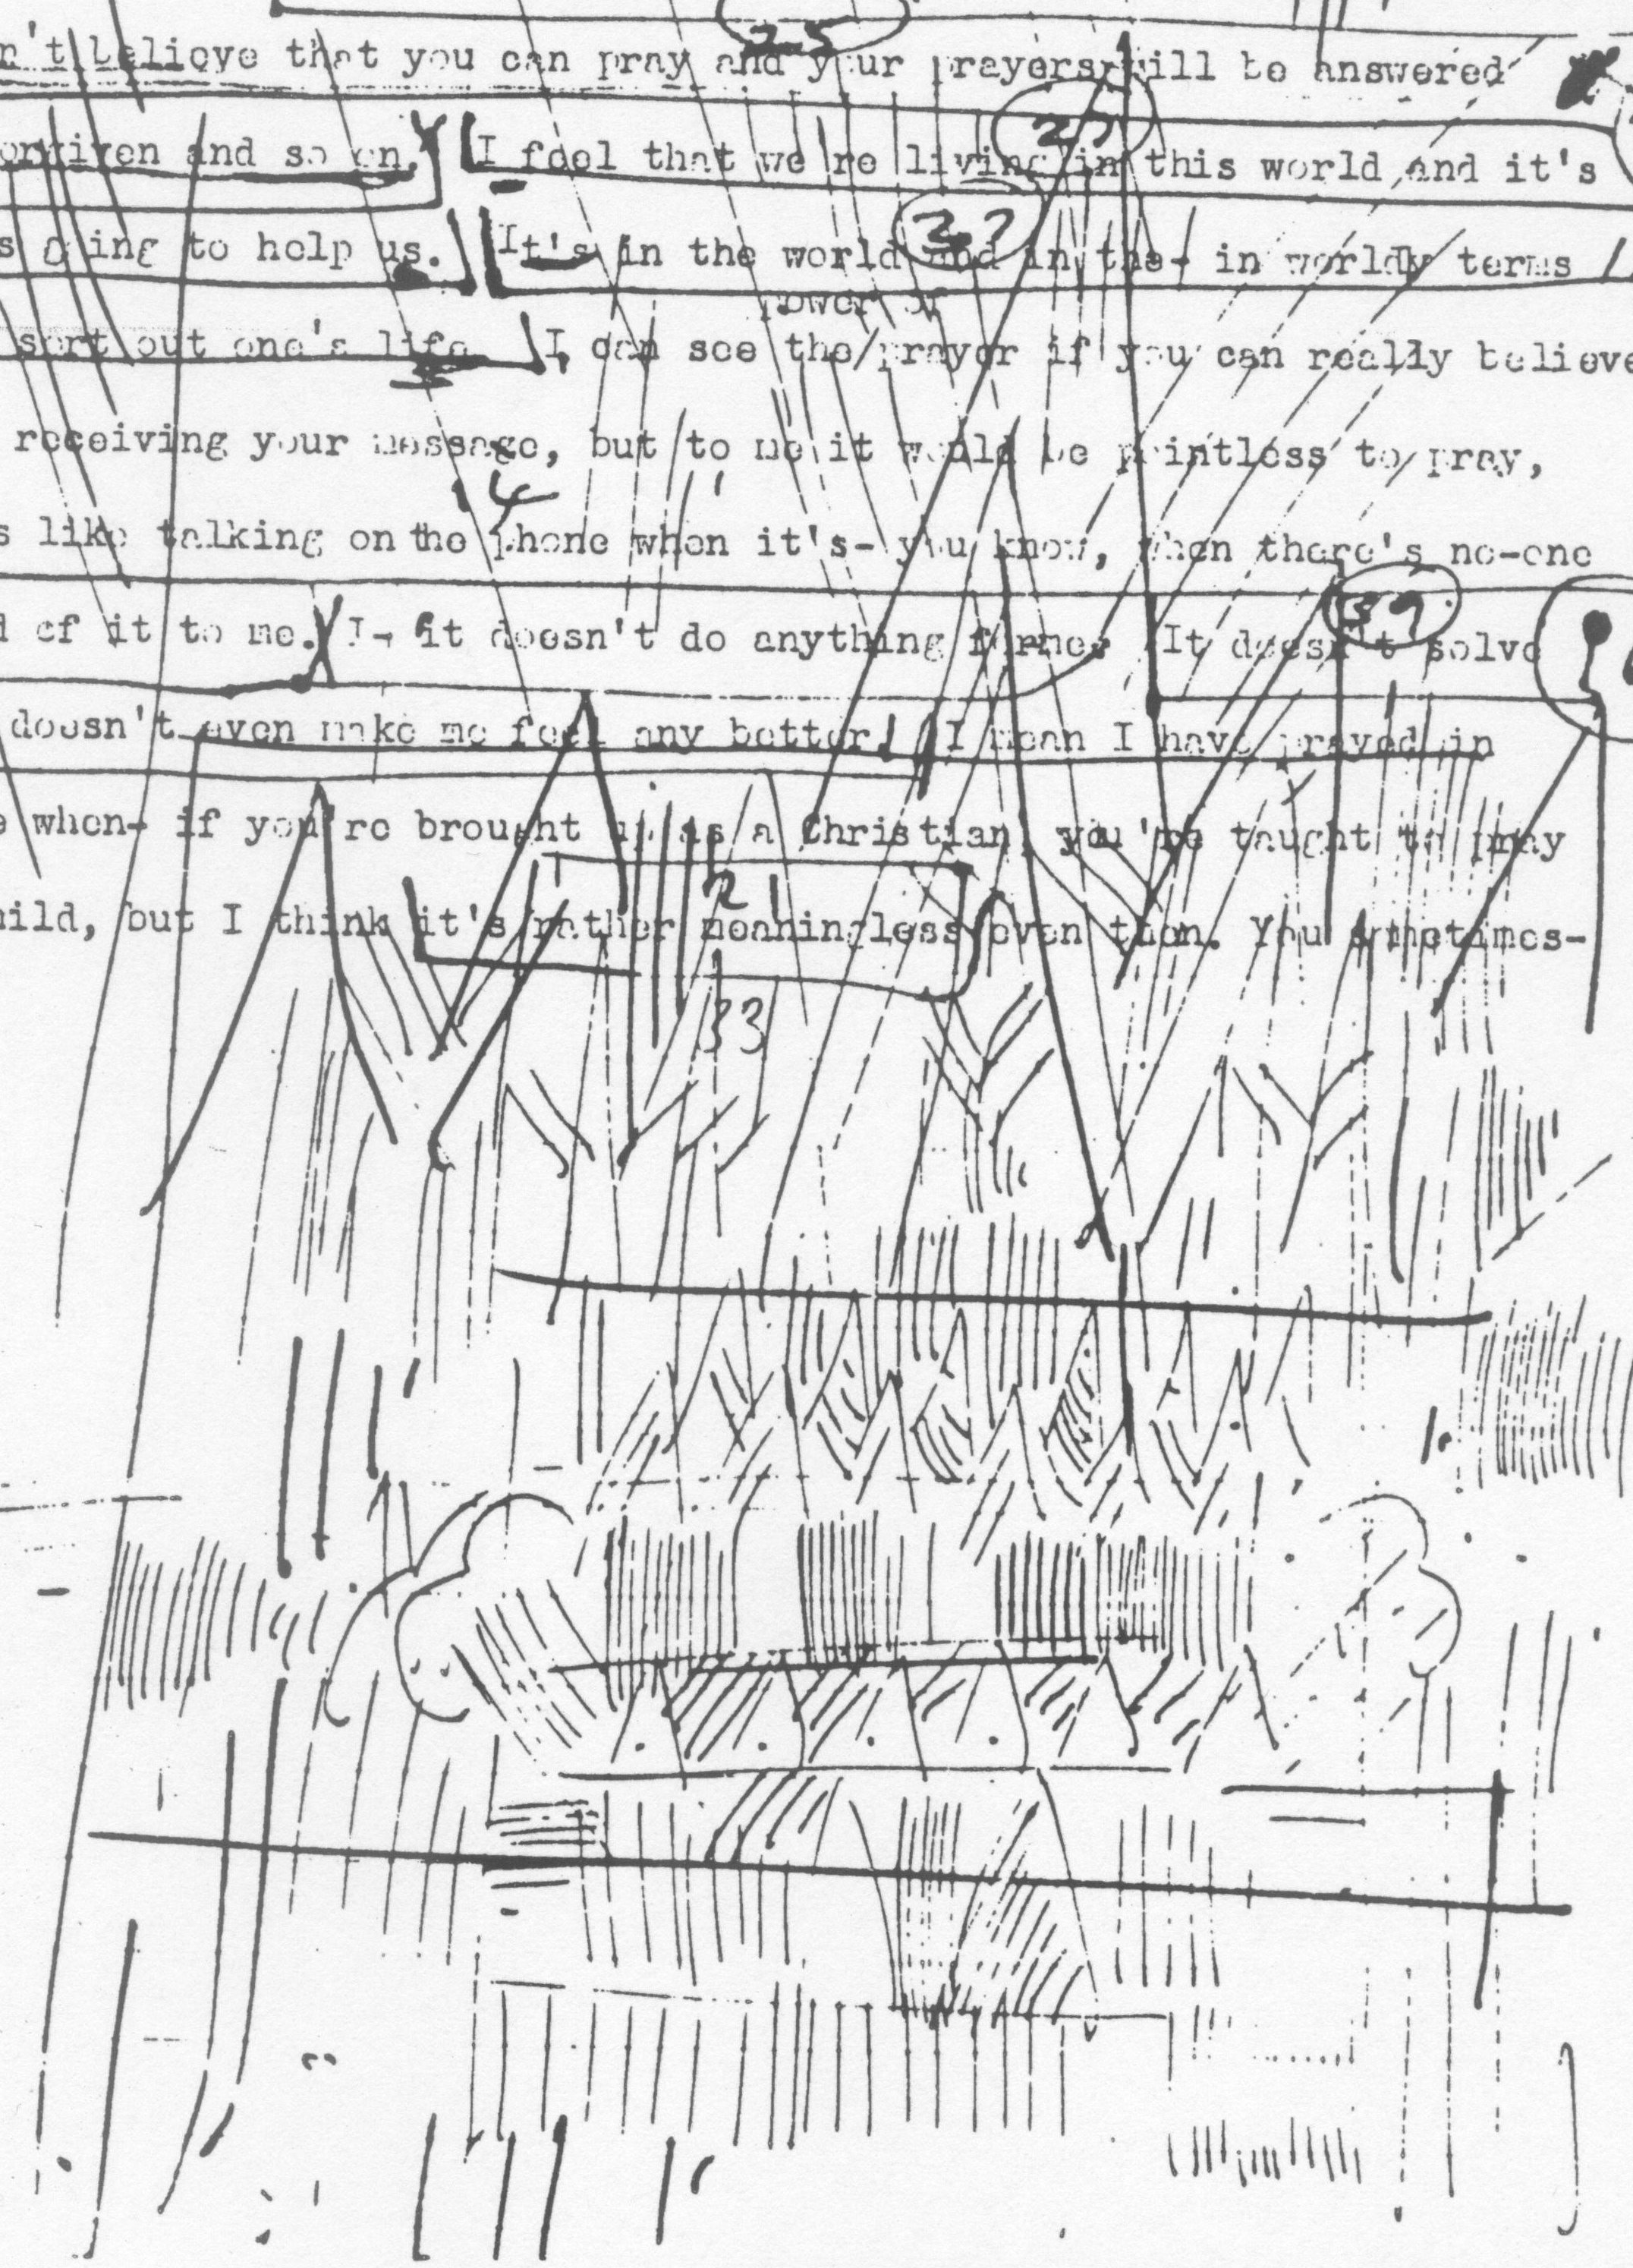 25
n't believe that you can pray and your prayers will be answered
27
orgiven and so on. I feel that we're living in this world and it's
37
s going to help us. It's in the world and in the- in worldly terms
power of
sort out one's life. I can see the/prayer if you can really believe
receiving your message, but to me it would be pointless to pray,
4
s like talking on the phone when it's- you know, when there's no-one
39
d of it to me. I- it doesn't do anything for me. It doesn't solve
doesn't even make me feel any better. I mean I have prayed in
e when- if you're brought up as a Christian, you're taught to pray
21
hild, but I think it's rather meaningless even then. You sometimes-
33